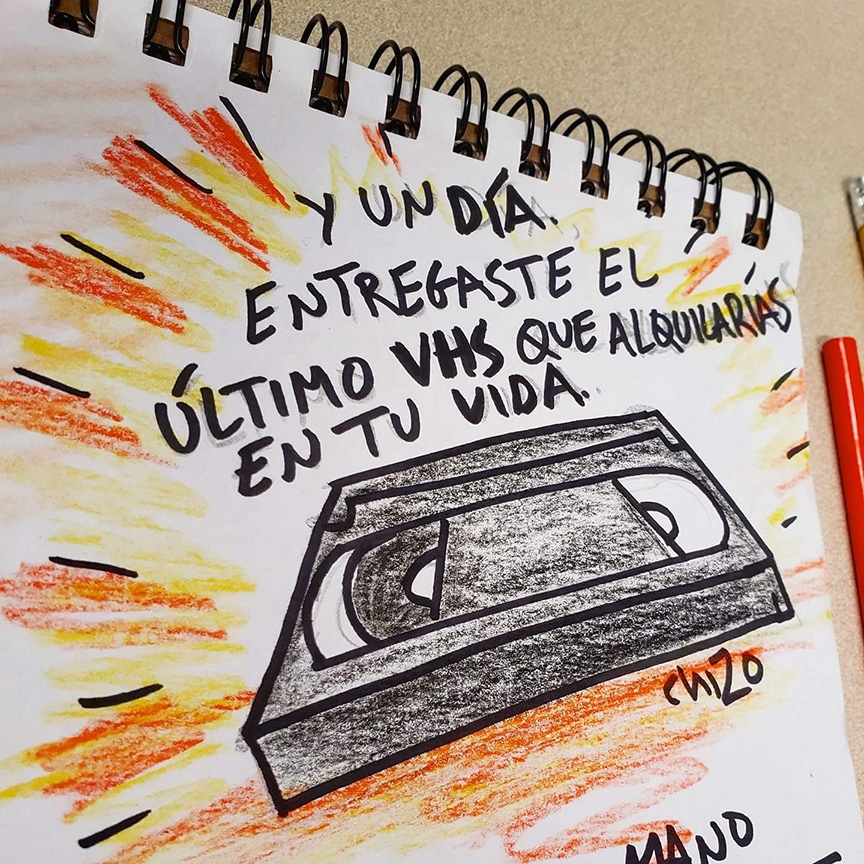 Y UN DÍA.
ENTREGASTE EL
ÚLTIMO VHS QUE ALQUILARÍAS
EN TU VIDA.
chiZo
MANO